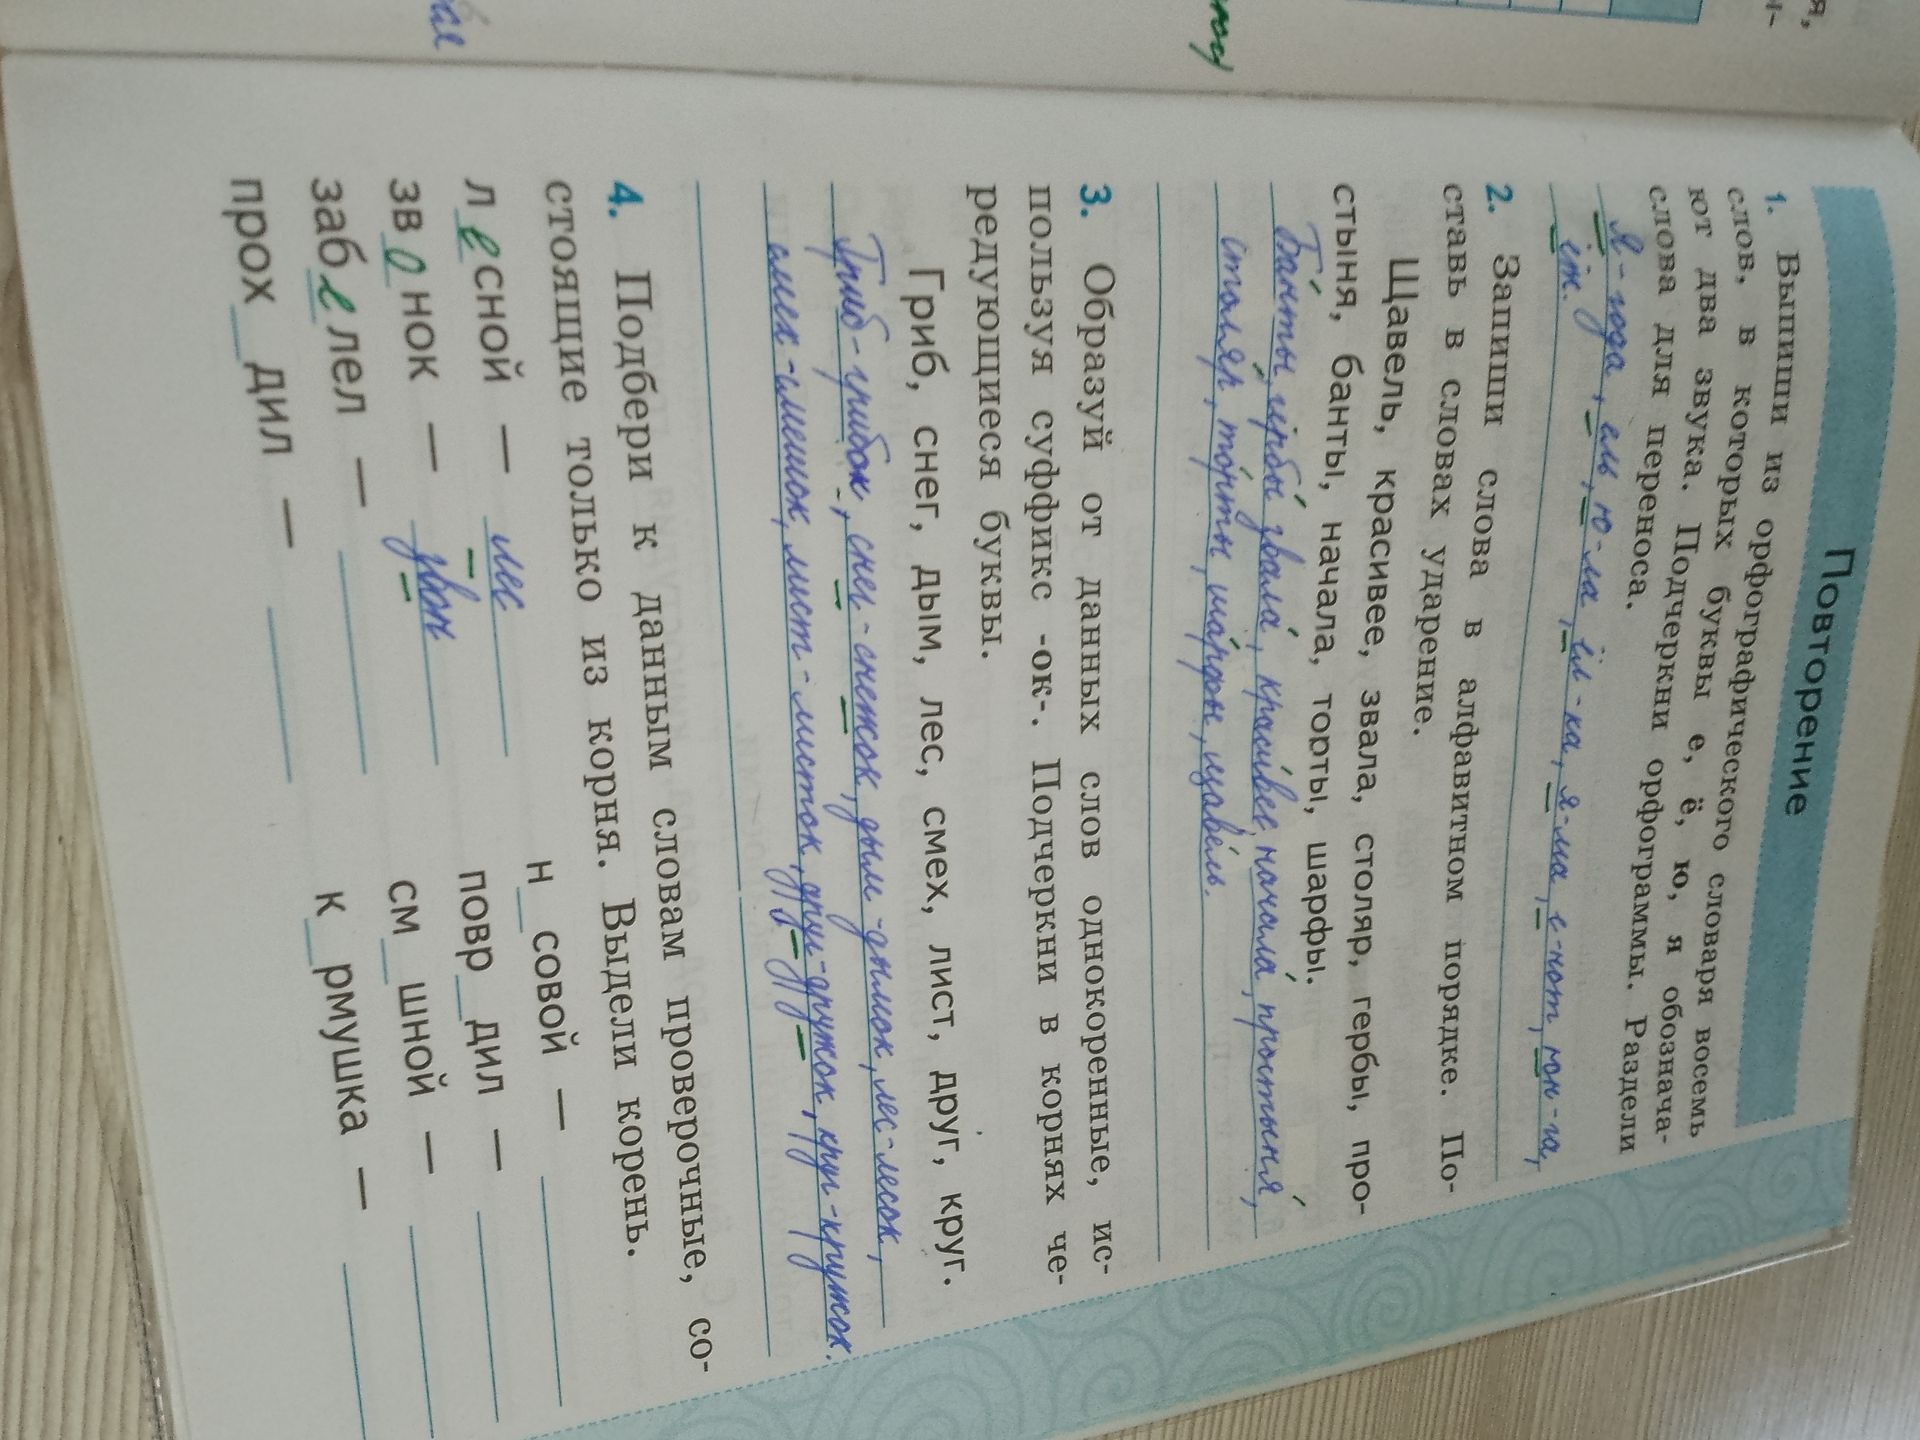 Повторение
1. Выпиши из орфографического словаря восемь
слов, в которых буквы е, ё, ю, я обознача-
ют два звука. Подчеркни орфограммы. Раздели
слова для переноса.
Я-года, ель, ю-ла, ёл-ка, я-ма, е-нот, юн-га,
ёж.
2. Запиши слова в алфавитном порядке. По-
ставь в словах ударение.
Щавель, красивее, звала, столяр, гербы, про-
стыня, банты, начала, торты, шарфы.
Ба́нты, гербы́, звала́, краси́вее, начала́, простыня́,
столя́р, то́рты, ша́рфы, щаве́ль.
3. Образуй от данных слов однокоренные, ис-
пользуя суффикс -ок-. Подчеркни в корнях че-
редующиеся буквы.
Гриб, снег, дым, лес, смех, лист, друг, круг.
Гриб-грибок, снег-снежок, дым-дымок, лес-лесок,
смех-смешок, лист-листок, друг-дружок, круг-кружок.
4. Подбери к данным словам проверочные, со-
стоящие только из корня. Выдели корень.
лесной — лес н_совой —
звонок — звон повр_дил —
забелел — см_шной —
прох_дил — к_рмушка —